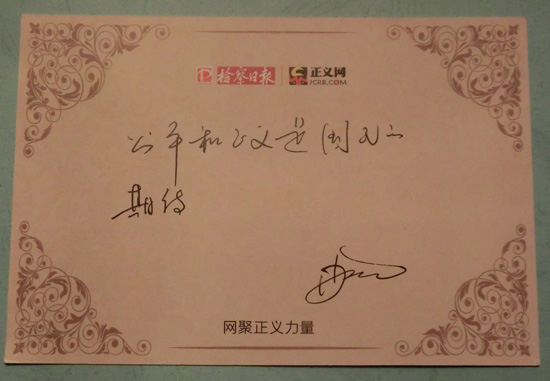 检察日报 正义网
JCRB.COM
公平和正义是
期待
网聚正义力量